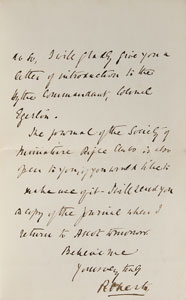 so to, I will gladly give you a
letter of introduction to the
Hythe Commandant, Colonel
Egerton.
The Journal of the Society of
Miniature Rifle Clubs is also
open to you, if you would like to
make use of it - I will send you
a copy of the Journal when I
return to Ascot tomorrow
Believe me
Yours very truly
Roberts